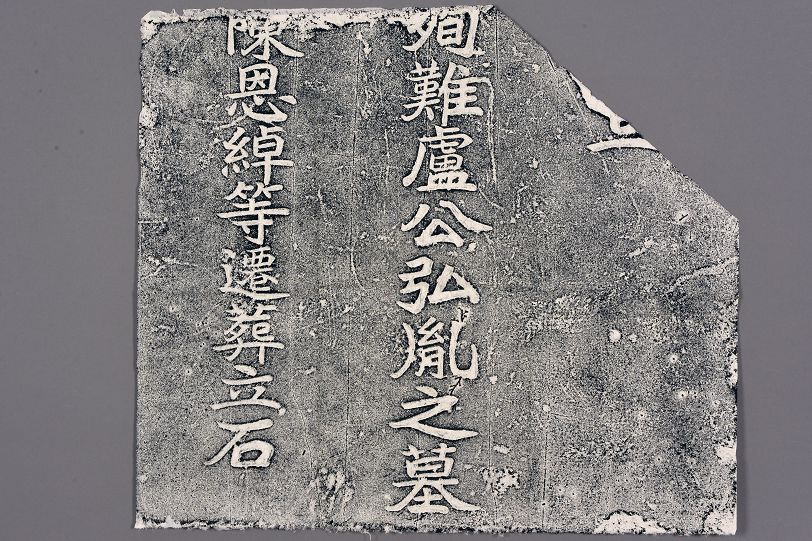 殉難盧公弘胤之墓
陳恩綽等遷葬立石